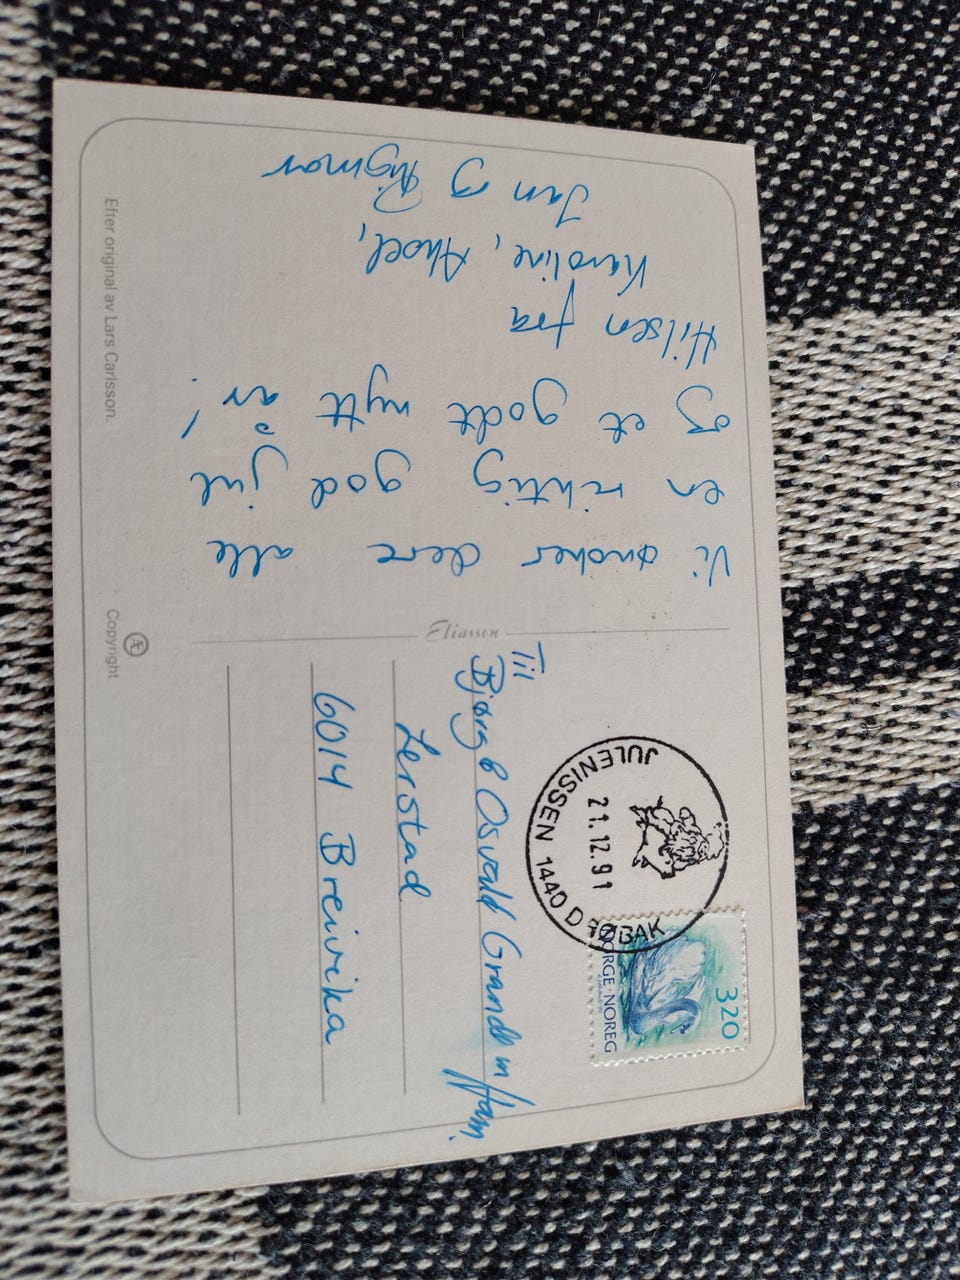 Vi ønsker dere alle
en riktig god jul
og et godt nytt år!
Hilsen fra
Karoline, Aksel,
Jan og Rigmor
Efter original av Lars Carlsson.
Eliassen
Æ
Copyright
JULENISSEN 1440 DRØBAK
21.12.91
320
NORGE·NOREG
Til
Bjørg & Osvald Grande m/fam.
Lerstad
6014 Breivika